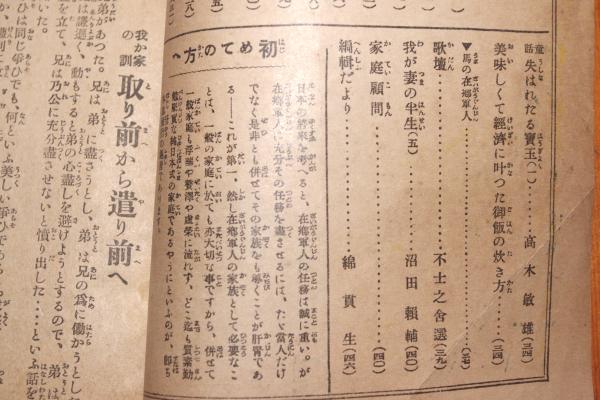 童話 失はれたる寶玉(一)……高木敏雄(三四)
美味しくて經濟に叶つた御飯の炊き方……(三四)
▼馬の在郷軍人……(三七)
歌壇……不士之舍選(三九)
我が妻の半生(五)……沼田賴輔(四〇)
家庭顧問……(四〇)
編輯だより……綿貫生(四六)
初めての方へ
日本の將來を考へると、在郷軍人の任務は誠に重い。が
在郷軍人に充分その任務を盡させるには、たゞ當人だけ
でなく是非とも併せてその家族をも導くことが肝腎であ
る――これが第一、然し在郷軍人の家族として必要なこ
とは、一般の家庭に於ても亦大切な事ですから、併せて
一般家庭も浮華や贅澤や虚榮に流れず、どこ迄も質素勤
儉質實な純日本式の家庭であるやうにといふのが、卽ち
我か家の訓
取り前から遣り前へ
弟があつた。兄は弟に盡さうとし、弟は兄の爲に働かうとし
は謙遜く、動もすると弟の心盡しを避けようとするので、弟は
を立て、兄は乃公に充分盡させないと憤り出した…といふ話を
いた。
ひは同じ爭ひでも、何といふ美しい爭ひであらう